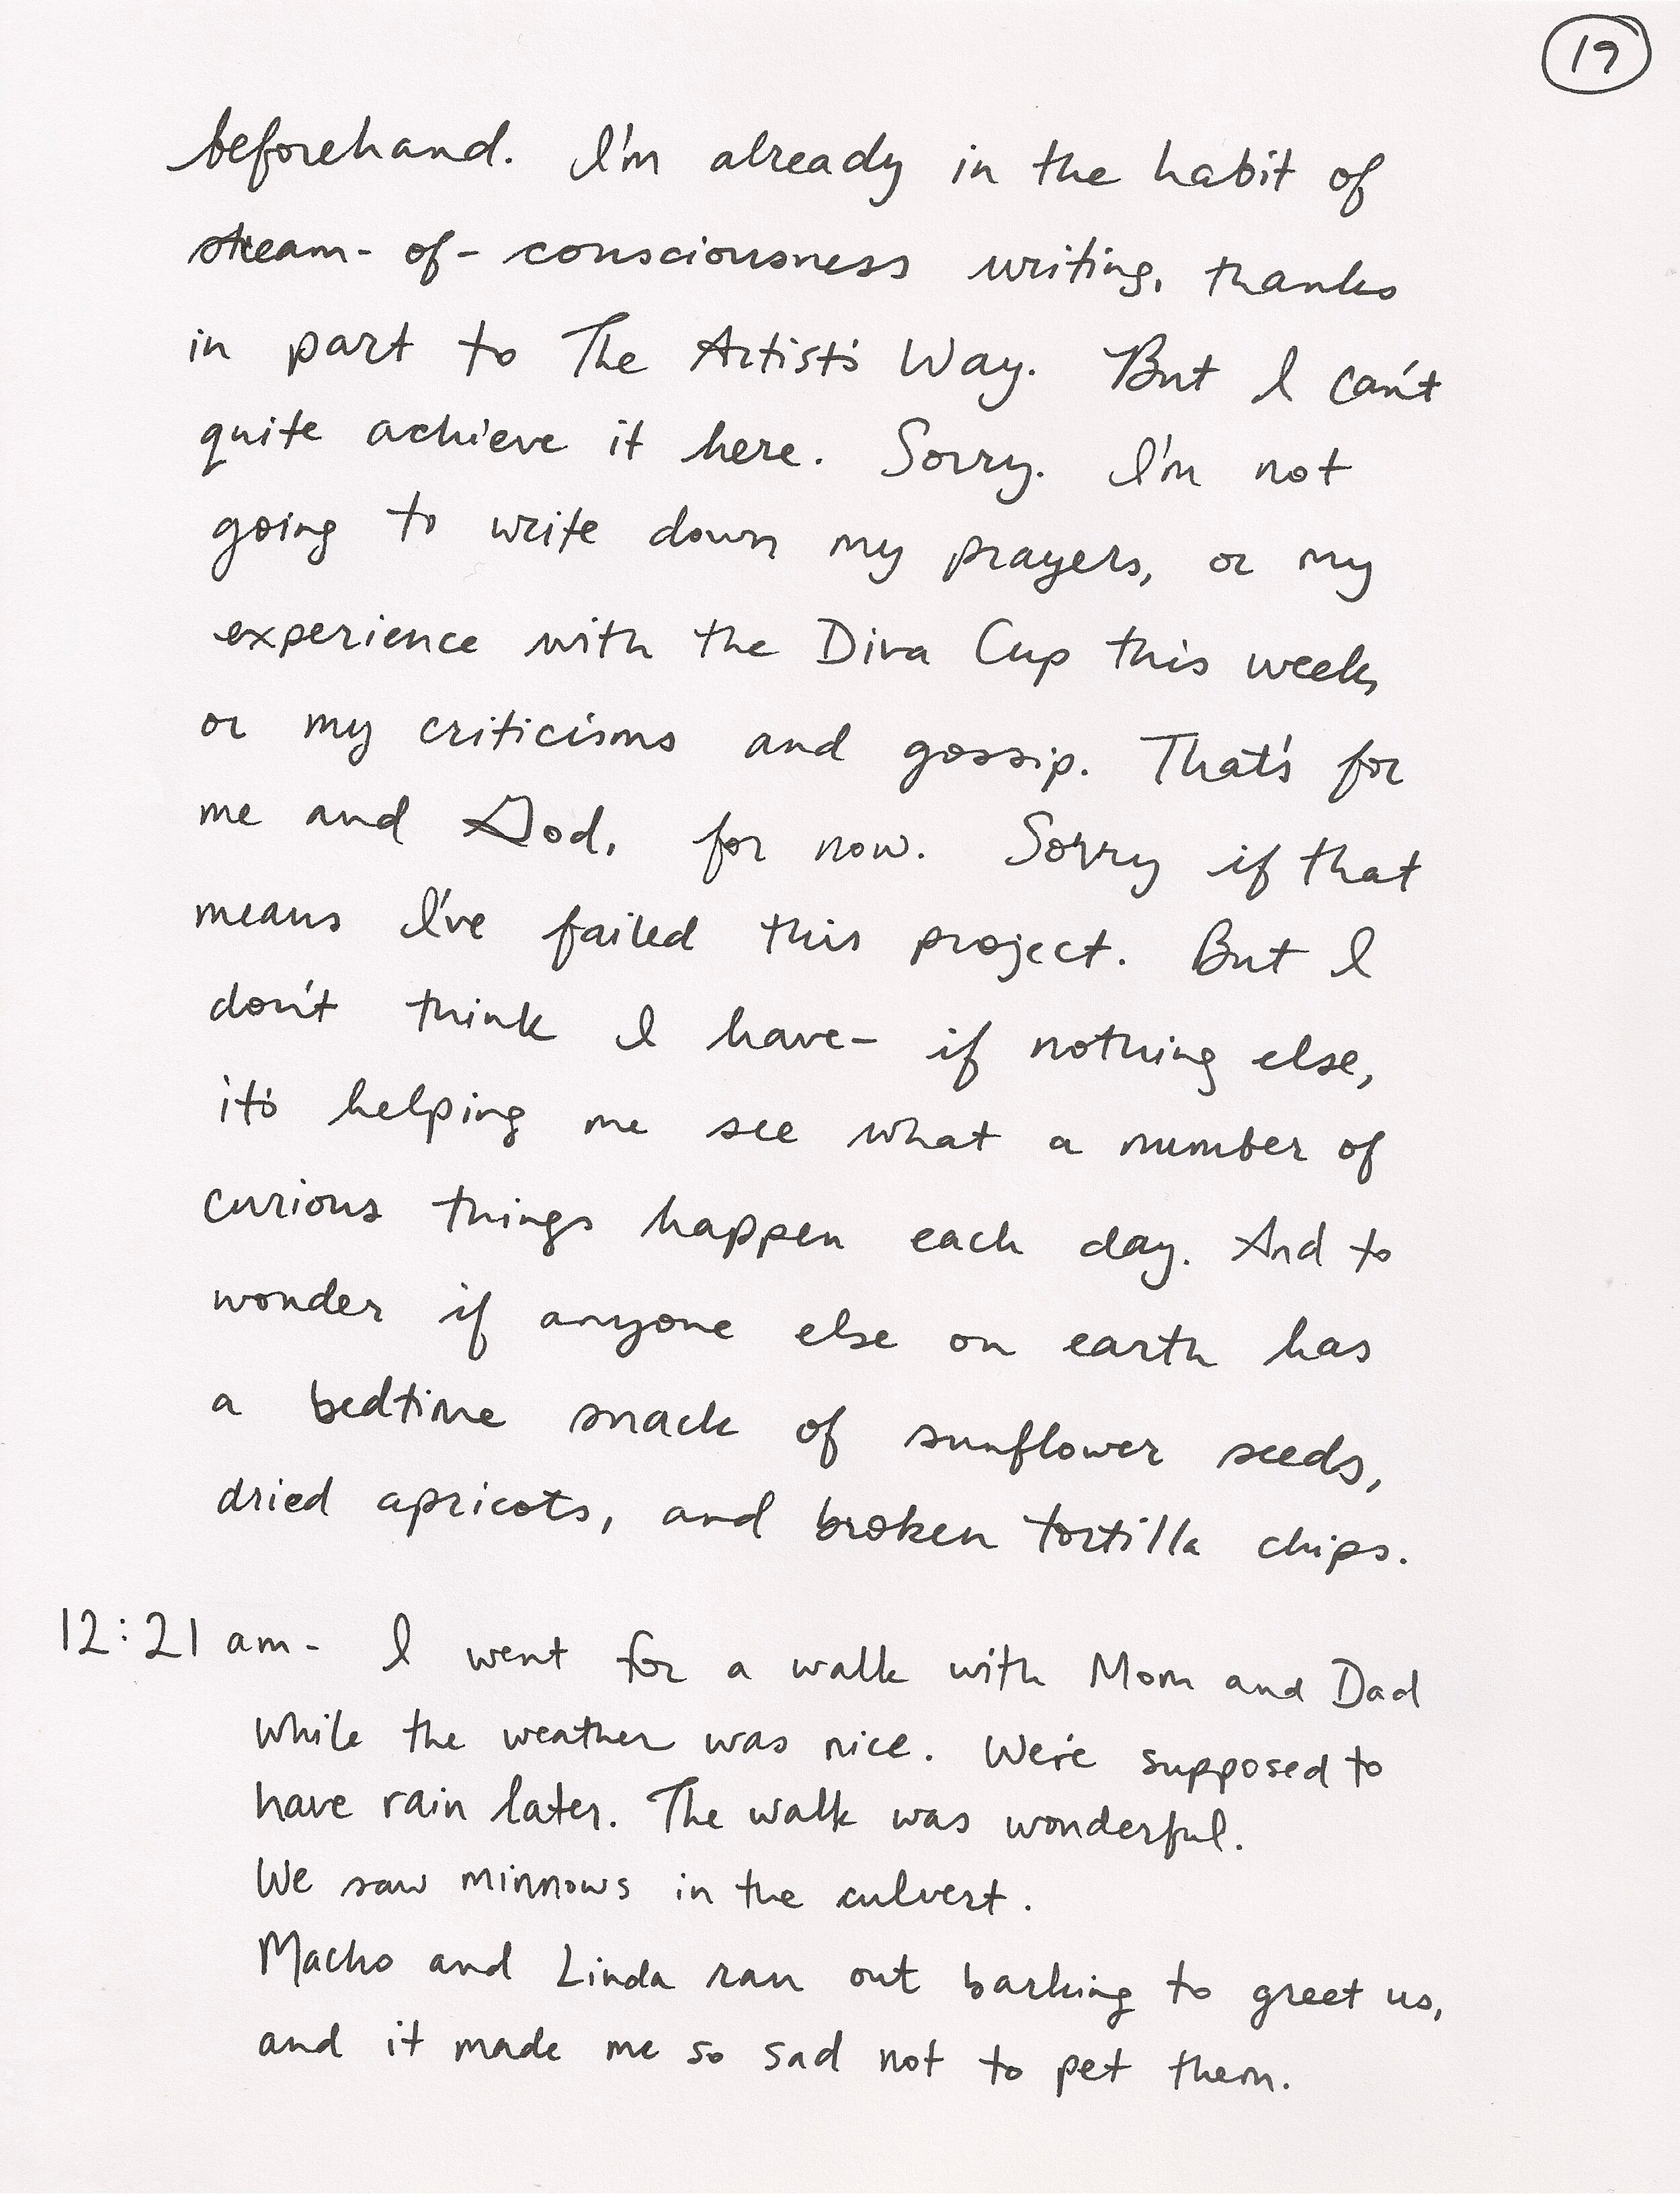 19
beforehand. I'm already in the habit of
stream-of-consciousness writing, thanks
in part to The Artist's Way. But I can't
quite achieve it here. Sorry. I'm not
going to write down my prayers, or my
experience with the Diva Cup this week,
or my criticisms and gossip. That's for
me and God, for now. Sorry if that
means I've failed this project. But I
don't think I have- if nothing else,
it's helping me see what a number of
curious things happen each day. And to
wonder if anyone else on earth has
a bedtime snack of sunflower seeds,
dried apricots, and broken tortilla chips.
12:21 am- I went for a walk with Mom and Dad
while the weather was nice. We're supposed to
have rain later. The walk was wonderful.
We saw minnows in the culvert.
Macho and Linda ran out barking to greet us,
and it made me so sad not to pet them.